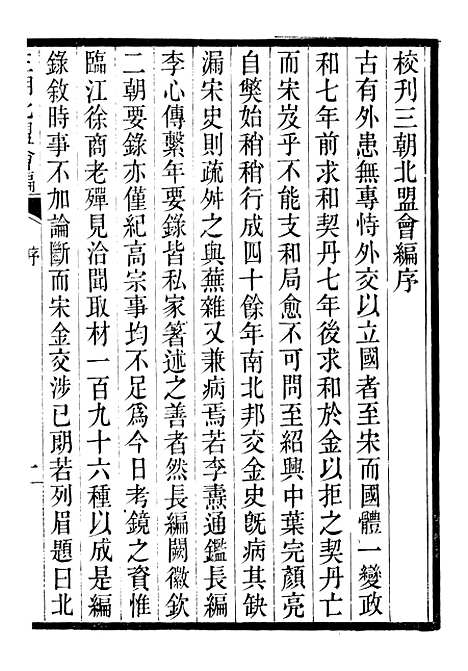 校刊三朝北盟會編序
古有外患無專恃外交以立國者至宋而國體一變政
和七年前求和契丹七年後求和於金以拒之契丹亡
而宋岌乎不能支和局愈不可問至紹興中葉完顏亮
自獘始稍稍行成四十餘年南北邦交金史旣病其缺
漏宋史則疏舛之與蕪雜又兼病焉若李燾通鑑長編
李心傳繫年要錄皆私家著述之善者然長編闕徽欽
二朝要錄亦僅紀高宗事均不足爲今日考鏡之資惟
臨江徐商老殫見洽聞取材一百九十六種以成是編
錄敘時事不加論斷而宋金交涉已朗若列眉題曰北
三朝北盟會編
序
一